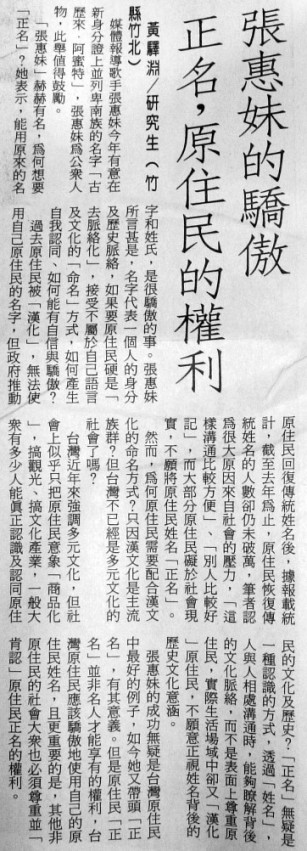 張惠妹的驕傲
正名，原住民的權利
黃驛淵／研究生（竹
縣竹北）
媒體報導歌手張惠妹今年有意在
新身分證上並列卑南族的名字「古
歷來‧阿蜜特」，張惠妹為公眾人
物，此舉值得鼓勵。
「張惠妹」赫赫有名，為何想要
「正名」？她表示，能用原來的名
字和姓氏，是很驕傲的事。張惠妹
所言甚是，名字代表一個人的身分
及歷史脈絡，如果要原住民硬是「
去脈絡化」，接受不屬於自己語言
及文化的「命名」方式，如何產生
自我認同、如何能有自信與驕傲？
過去原住民被「漢化」，無法使
用自己原住民的名字，但政府推動
原住民回復傳統姓名後，據報載統
計，截至去年為止，原住民恢復傳
統姓名的人數卻仍未破萬，筆者認
為很大原因來自社會的壓力，「這
樣溝通比較方便」、「別人比較好
記」，而大部分原住民礙於社會現
實，不願將原住民姓名「正名」。
然而，為何原住民需要配合漢文
化的命名方式？只因漢文化是主流
族群？但台灣不已經是多元文化的
社會了嗎？
台灣近年來強調多元文化，但社
會上似乎只把原住民意象「商品化
」，搞觀光、搞文化產業，一般大
眾有多少人能真正認識及認同原住
民的文化及歷史？「正名」無疑是
一種認識的方式，透過「姓名」，
人與人相處溝通時，能夠瞭解背後
的文化脈絡，而不是表面上尊重原
住民，實際生活場域中卻又「漢化
」原住民，不願意正視姓名背後的
歷史文化意涵。
張惠妹的成功無疑是台灣原住民
中最好的例子，如今她又帶頭「正
名」，有其意義。但是原住民「正
名」並非名人才能享有的權利，台
灣原住民應該驕傲地使用自己的原
住民姓名，且更重要的是，其他非
原住民的社會大眾也必須尊重並「
肯認」原住民正名的權利。